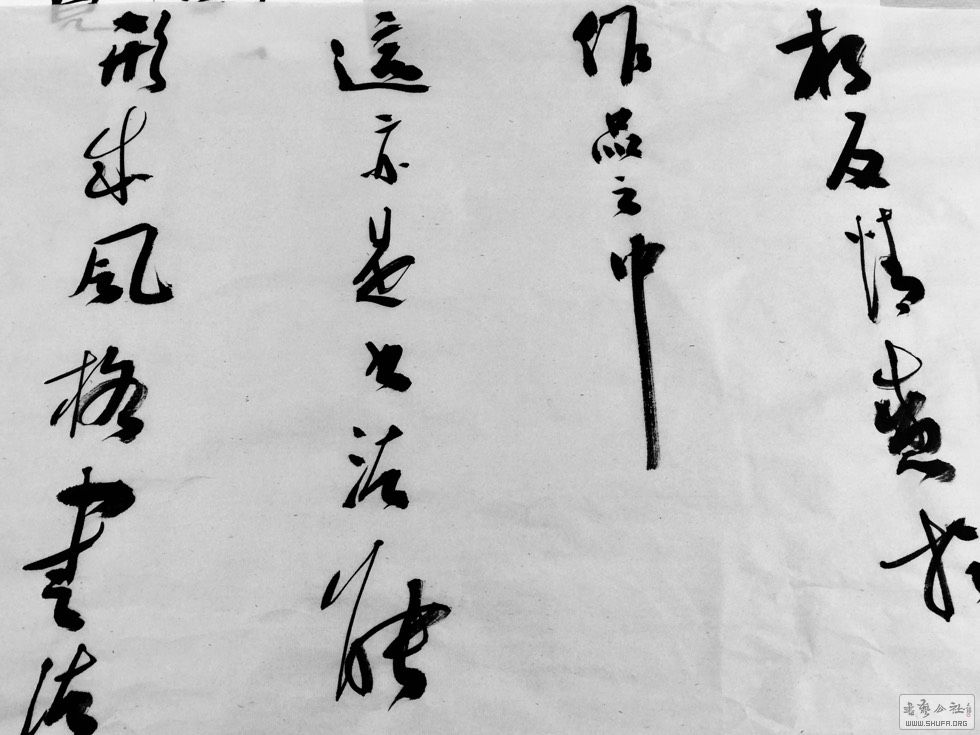 相反情感於
作品之中
這亦是书法能
形成風格書法
書藝公社
WWW.SHUFA.ORG